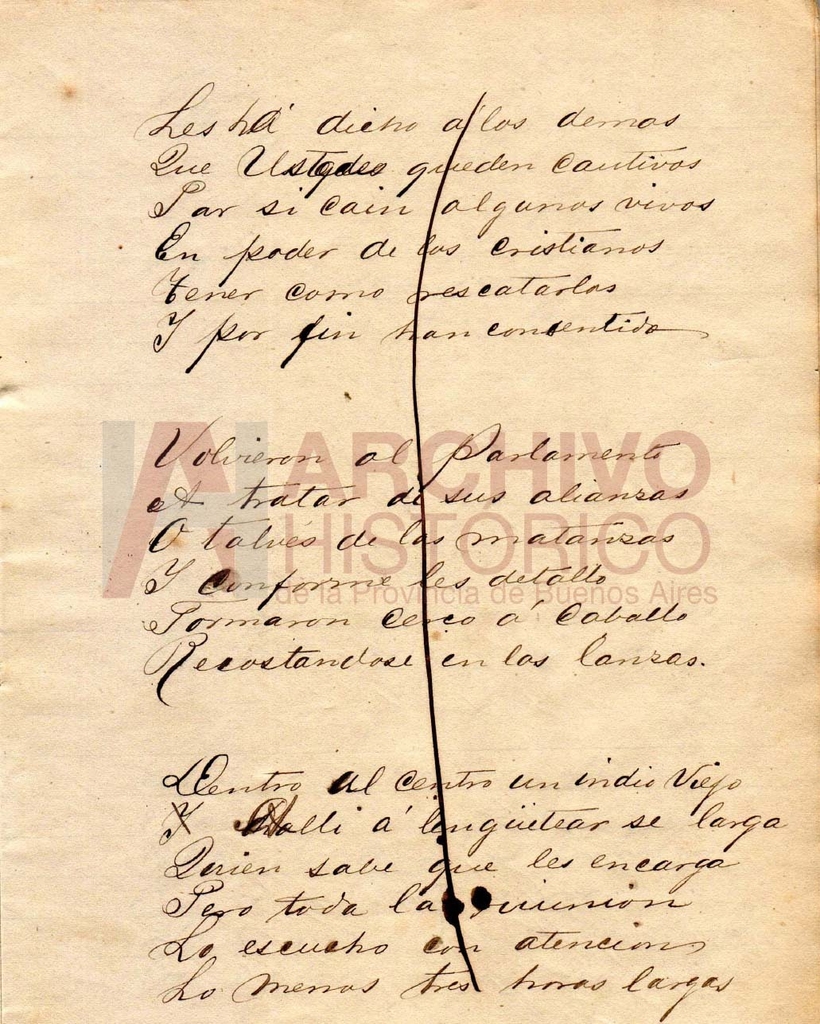 Les há dicho á los demas
Que Ustedes queden cautivos
Par si cain algunos vivos
En poder de los cristianos
Tener como rescatarlos
Y por fin han consentido
Volvieron al Parlamento
A tratar de sus alianzas
O talvés de las matanzas
Y conforme les detallo
Formaron cerco á Caballo
Recostandose en las lanzas.
Dentro al centro un indio Viejo
Y alli á lengüetear se larga
Quien sabe que les encarga
Pero toda la riunion
Lo escucho con atencion
Lo menos tres horas largas
AH ARCHIVO
HISTÓRICO
de la Provincia de Buenos Aires